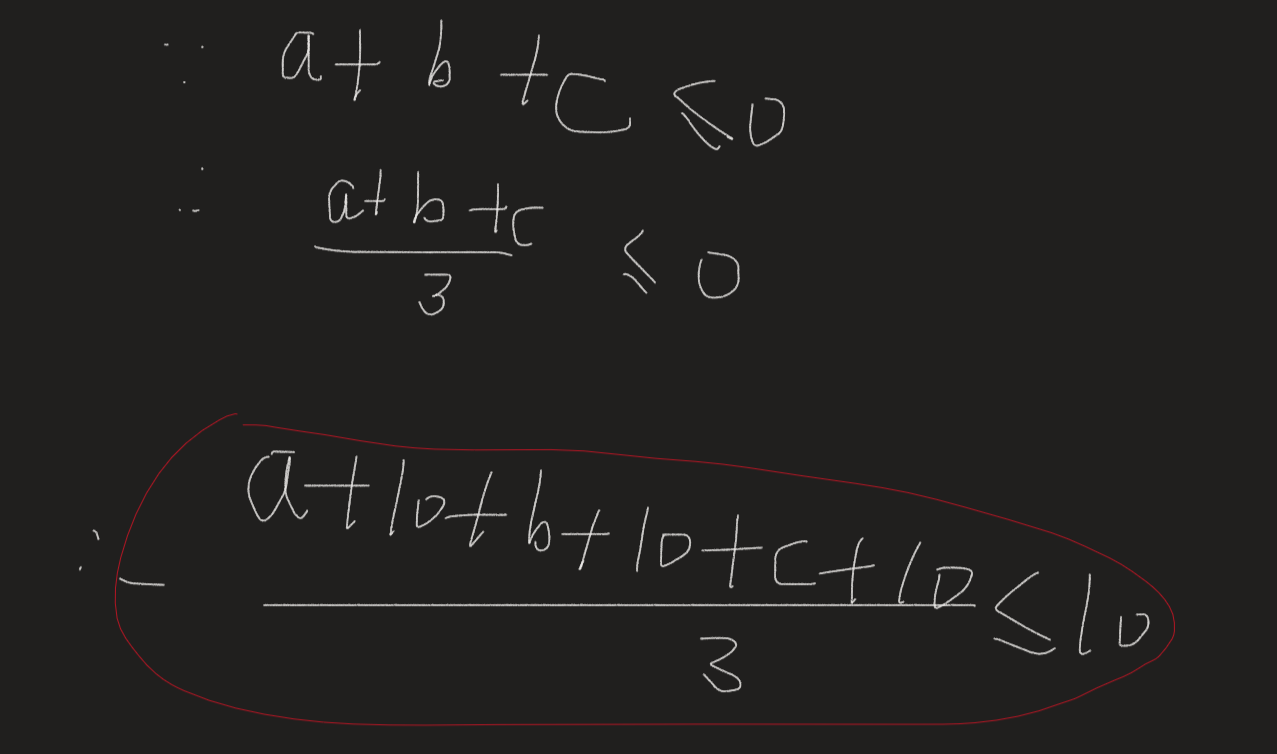 ∵ a + b + c ≤ 0
∴ (a + b + c)/3 ≤ 0
∴ (a + 10 + b + 10 + c + 10)/3 ≤ 10